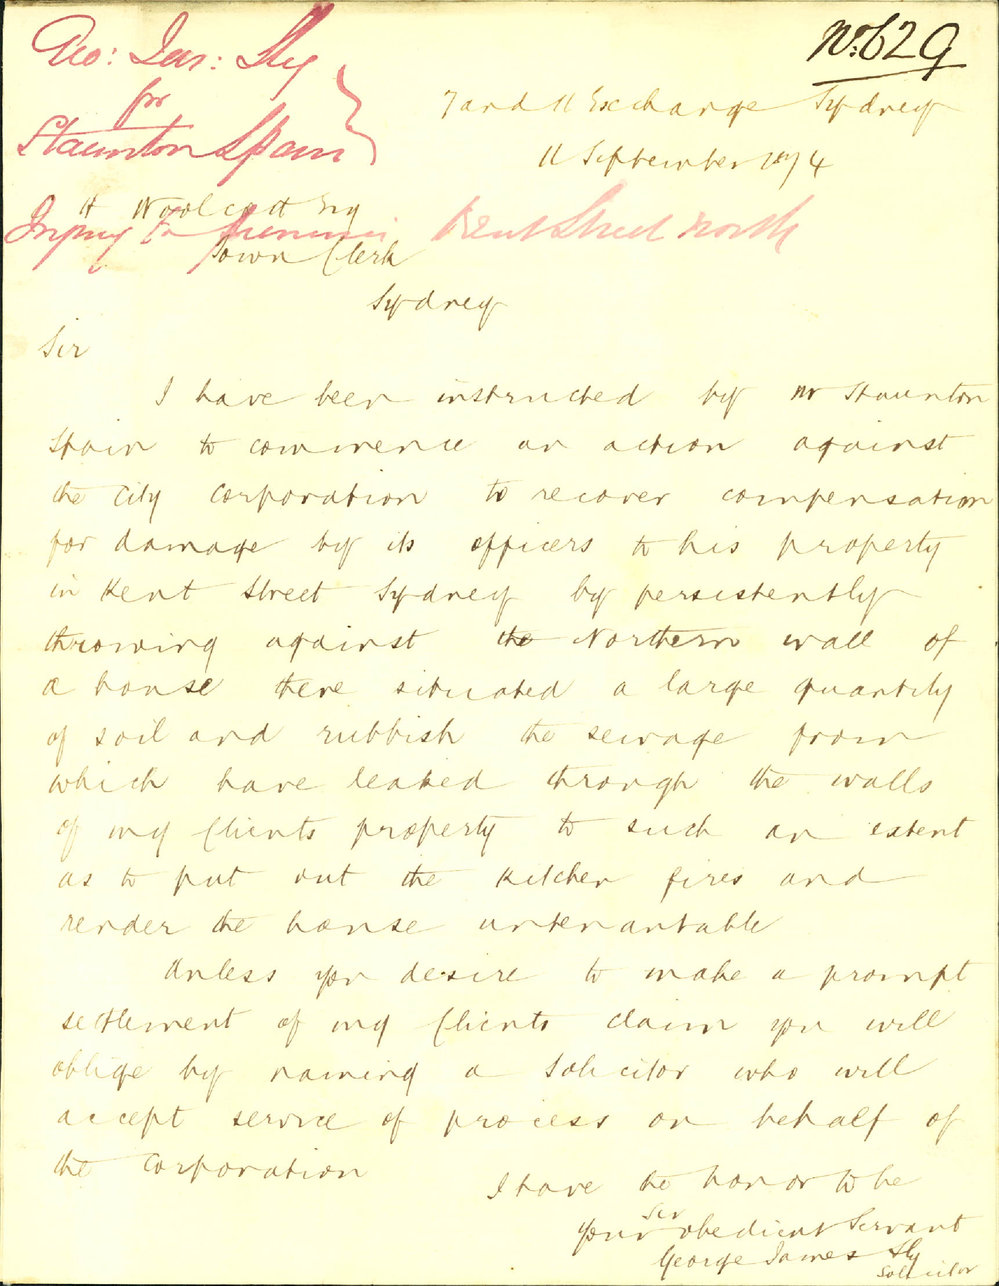 No. 629
Geo: Jas: Sly
for
Staunton Spain
7 and 11 Exchange Sydney
11 September 1874
H Woolcott Esq
Injury to premises Kent Street North
Town Clerk
Sydney
Sir
I have been instructed by Mr Staunton
Spain to commence an action against
the City Corporation to recover compensation
for damage by its officers to his property
in Kent Street Sydney by persistently
throwing against the Northern wall of
a house there situated a large quantity
of soil and rubbish the sewage from
which have leaked through the walls
of my Clients property to such an extent
as to put out the kitchen fires and
render the house untenantable
Unless you desire to make a prompt
settlement of my Clients claim you will
oblige by naming a Solicitor who will
accept service of process on behalf of
the Corporation
I have the honor to be
Sir
Your obedient Servant
George James Sly
Solicitor